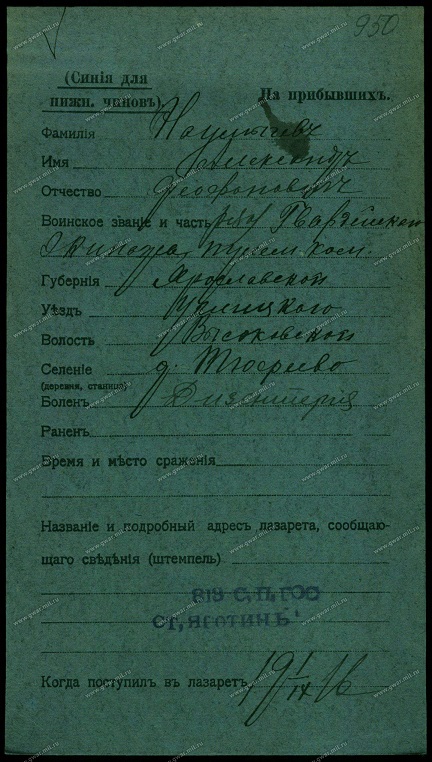 950
(Синія для
нижн. чиновъ).
На прибывшихъ.
Фамилія
Имя Александръ
Отчество
Воинское званіе и часть ряд Гвардейскаго
Экипажа,
Губернія Ярославской
Уѣздъ Углицкого
Волость Высоковской
Селеніе д.
(деревня, станица)
Боленъ Дизентерія
Раненъ
Время и мѣсто сраженія
Названіе и подробный адресъ лазарета, сообщаю-
щаго свѣдѣнія (штемпель)
819 С. П. ГОС
СТ, ЯГОТИНЪ
Когда поступилъ въ лазаретъ 19 1/IX 16
www.gwar.mil.ru